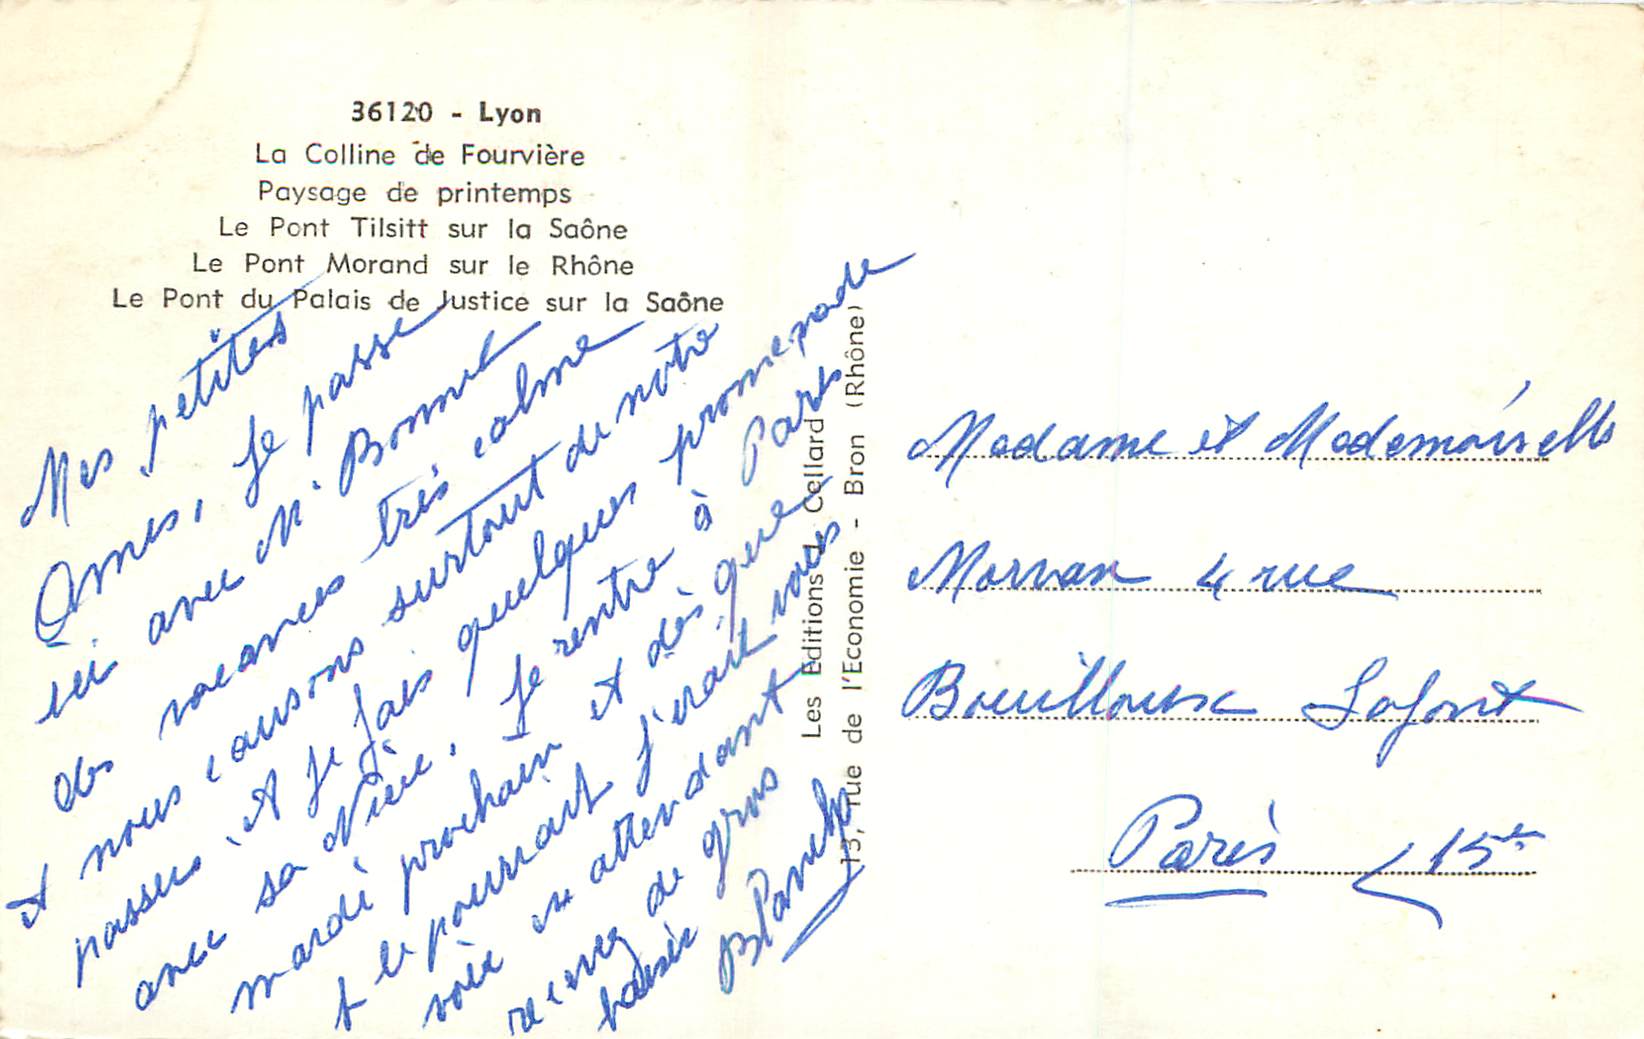 36120 - Lyon
La Colline de Fourvière
Paysage de printemps
Le Pont Tilsitt sur la Saône
Le Pont Morand sur le Rhône
Le Pont du Palais de Justice sur la Saône
Mes petites
Amies, Je passe
ici avec Me Bonnet
des vacances très calme
et nous causons surtout de notre
passés et je fais quelques promenade
avec sa Nièce, Je rentre à Paris
mardi prochain et dès que
je le pourrait j'irait vous
voir en attendant
recevez de gros
baisés
Blanche
Les Editions J. Cellard
13, rue de l'Economie - Bron (Rhône)
Madame et Mademoiselle
Morvan 4 rue
Bouilloux Lafont
Paris 15e